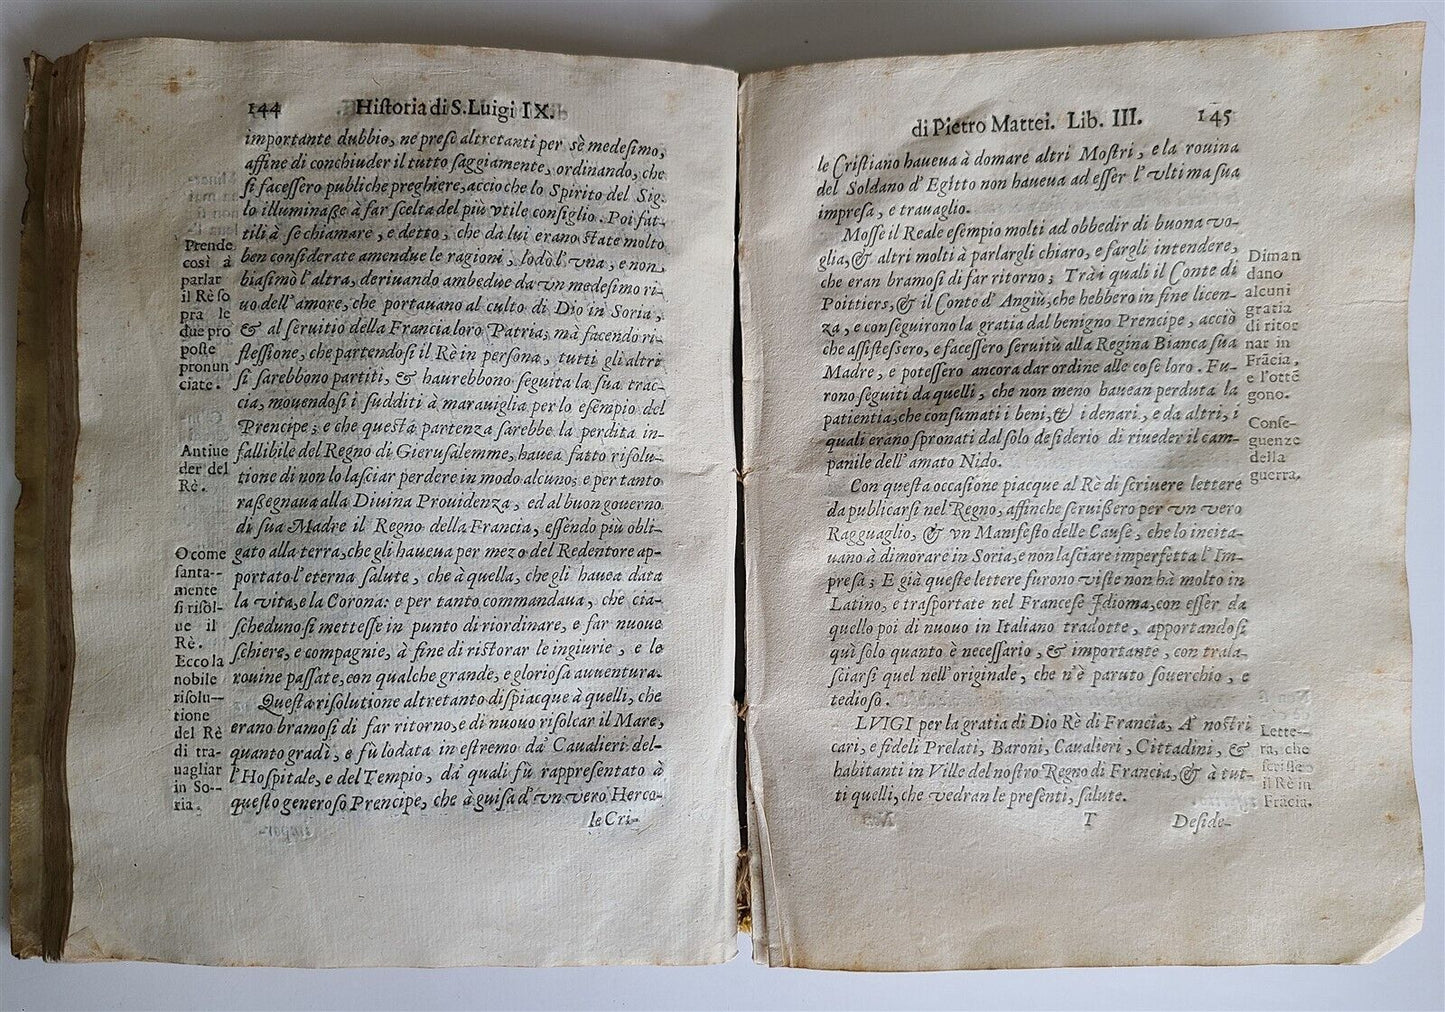 144 Hiſtoria di S. Luigi IX.
importante dubbio, ne preſe altretanti per sè medeſimo,
affine di conchiuder il tutto ſaggiamente, ordinando, che
ſi faceſſero publiche preghiere, accioche lo Spirito del Sig.
lo illuminaſſe à far ſcelta del più vtile conſiglio. Poi fat-
tili à ſe chiamare, e detto, che da lui erano ſtate molto
ben conſiderate amendue le ragioni, lodò l'vna, e non
biaſimò l'altra, deriuando ambedue da vn medeſimo ri-
uo dell'amore, che portauano al culto di Dio in Soria,
& al ſeruitio della Francia loro Patria; mà facendo ri-
fleſſione, che partendoſi il Rè in perſona, tutti gli altri
ſi ſarebbono partiti, & haurebbono ſeguita la ſua trac-
cia, mouendoſi i ſudditi à marauiglia per lo eſempio del
Prencipe; e che queſta partenza ſarebbe la perdita in-
fallibile del Regno di Gieruſalemme, hauea fatto riſolu-
tione di non lo laſciar perdere in modo alcuno; e per tanto
raſſegnaua alla Diuina Prouidenza, ed al buon gouerno
di ſua Madre il Regno della Francia, eſſendo più obli-
gato alla terra, che gli haueua per mezo del Redentore ap-
portato l'eterna ſalute, che à quella, che gli hauea data
la vita, e la Corona: e per tanto commandaua, che cia-
ſcheduno ſi metteſſe in punto di riordinare, e far nuoue
ſchiere, e compagnie, à fine di riſtorar le ingiurie, e le
rouine paſſate, con qualche grande, e glorioſa auuentura.
Queſta riſolutione altretanto diſpiacque à quelli, che
erano bramoſi di far ritorno, e di nuouo riſolcar il Mare,
quanto gradì, e fù lodata in eſtremo da' Caualieri del-
l'Hoſpitale, e del Tempio, da' quali fù rappreſentato à
queſto generoſo Prencipe, che à guiſa d'vn vero Herco-
le Cri-
Prende
così à
parlar
il Rè ſo
pra le
due pro
poſte
pronun
ciate.
Antiue
der del
Rè.
O come
ſanta-
mente
ſi riſol-
ue il
Rè.
Ecco la
nobile
riſolu-
tione
del Rè
di tra-
uagliar
in So-
ria.
di Pietro Mattei. Lib. III. 145
le Criſtiano haueua à domare altri Moſtri, e la rouina
del Soldano d'Egitto non haueua ad eſſer l'vltima ſua
impreſa, e trauaglio.
Moſſe il Reale eſempio molti ad obbedir di buona vo-
glia, & altri molti à parlargli chiaro, e fargli intendere,
che eran bramoſi di far ritorno; Trà i quali il Conte di
Poittiers, & il Conte d'Angiù, che hebbero in fine licen-
za, e conſeguirono la gratia dal benigno Prencipe, acciò
che aſſiſteſſero, e faceſſero ſeruitù alla Regina Bianca ſua
Madre, e poteſſero ancora dar ordine alle coſe loro. Fu-
rono ſeguiti da quelli, che non meno hauean perduta la
patientia, che conſumati i beni, & i denari, e da altri, i
quali erano ſpronati dal ſolo deſiderio di riueder il cam-
panile dell'amato Nido.
Con queſta occaſione piacque al Rè di ſcriuere lettere
da publicarſi nel Regno, affinche ſeruiſſero per vn vero
Ragguaglio, & vn Manifeſto delle Cauſe, che lo incita-
uano à dimorare in Soria, e non laſciare imperfetta l'Im-
preſa; E già queſte lettere furono viſte non hà molto in
Latino, e traſportate nel Franceſe Idioma, con eſſer da
quello poi di nuouo in Italiano tradotte, apportandoſi
quì ſolo quanto è neceſſario, & importante, con trala-
ſciarſi quel nell'originale, che n'è paruto ſouerchio, e
tedioſo.
LVIGI per la gratia di Dio Rè di Francia, A' noſtri
cari, e fideli Prelati, Baroni, Caualieri, Cittadini, &
habitanti in Ville del noſtro Regno di Francia, & à tut-
ti quelli, che vedran le preſenti, ſalute.
T Deſide-
Diman
dano
alcuni
gratia
di ritor
nar in
Frācia,
e l'ottē
gono.
Conſe-
guenze
della
guerra.
Lette-
ra, che
ſcriſſe
il Rè in
Francia.